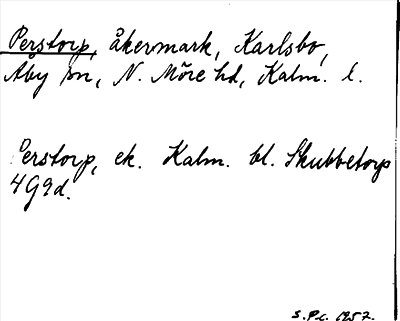 Perstorp, åkermark, Karlsbo,
Åby sn, N. Möre hd, Kalm. l.
Perstorp, ek. Kalm. bl. Skubbetorp
4G9d.
S.P.c. 1957.